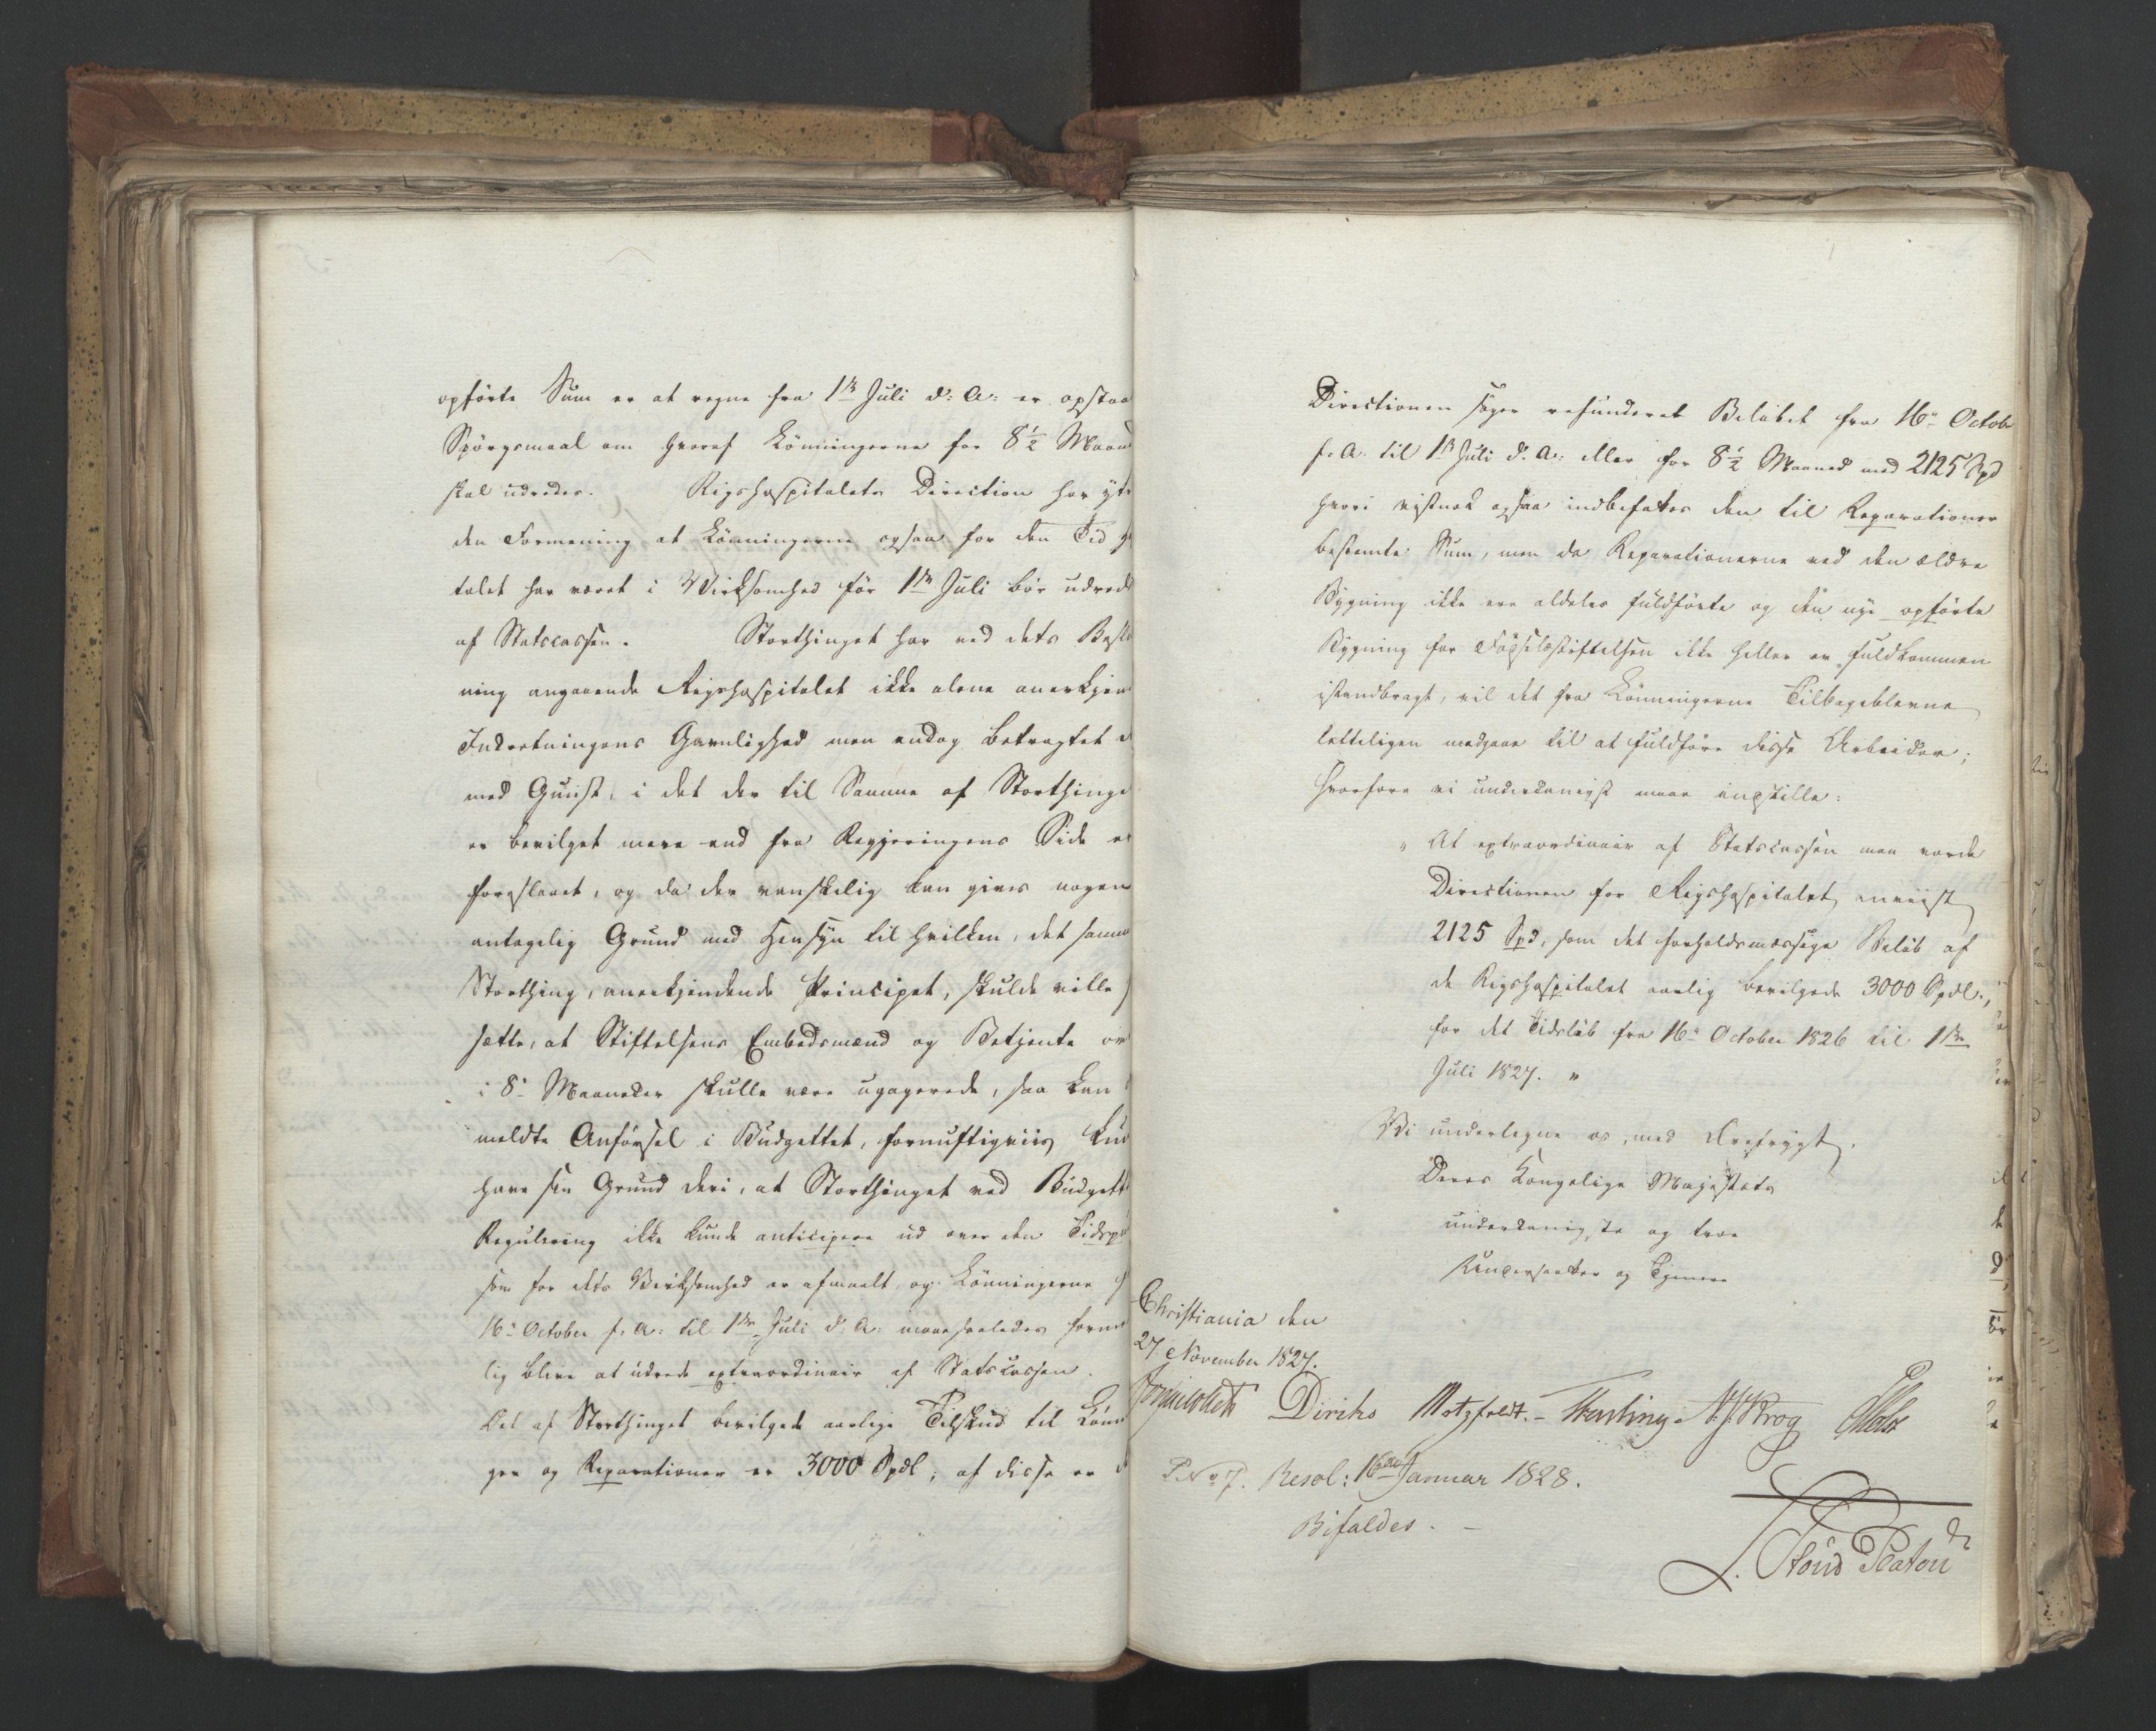 opførte Sum er at regne fra 1ste Juli d: A: er opstaa
Spørgsmaal om hvoraf Lønningerne for 8½ Maan
skal udredes. Rigshospitalets Direction har ytr
den Formening at Lønningerne ogsaa for den Tid
talet har været i Virksomhed før 1ste Juli bør udred
af Statscassen. Storthinget har ved dets
ning angaaende Rigshospitalet ikke alene anerkjen
Indretningens Gavnlighed men endog betragtet
med Gunst, i det der til Samme af Storthinge
er bevilget mere end fra Regjeringens Side er
foreslaaet, og da der vanskelig kan gives nogen
antagelig Grund med Hensyn til hvilken, det samme
Storthing, anerkjendende Principet, skulde ville
sætte, at Stiftelsens Embedsmænd og Betjente
i 8 Maaneder skulle være ugagerede, saa kan
meldte Anførsel i Budgettet, fornuftigviis kun
have sin Grund deri, at Storthinget ved Budgett
Regulering ikke kunde anticipere ud over den Tidsp
som for dets Virksomhed er afmaalt og Lønningerne
16de October f: A: til 1ste Juli d: A: maae saaledes
lig blive at udrede extraordinair af Statscassen.
Det af Storthinget bevilgede aarlige Tilskud til Løn
ger og Reparationer er 3000 Spdl; af disse er
Directionen søger refunderet Beløbet fra 16de Octob
f. A. til 1ste Juli d. A. eller for 8½ Maaned med 2125 Spd
hvori vistnok ogsaa indbefattes den til Reparationer
bestemte Sum, men da Reparationerne ved den ældre
Bygning ikke ere aldeles fuldførte og den nye opførte
Bygning for Fødselsstiftelsen ikke heller er fuldkommen
istandbragt, vil det fra Lønningerne Tilbageblevne
letteligen medgaae til at fuldføre disse Arbeider;
hvorfore vi underdanigst maae indstille:
" At extraordinair af Statscassen maa vorde
Directionen for Rigshospitalet anviist
2125 Spd, som det forholdsmæssige Beløb af
de Rigshospitalet aarlig bevilgede 3000 Spdl.,
for det Tidsløb fra 16de October 1826 til 1ste
Juli 1827. "
Vi undertegne os, med Ærefrygt,
Deres Kongelige Majestæts
underdanigste og troe
Undersaatter og Tjenere
Christiania den
27 November 1827.
Diriks Motzfeldt. Treschow
P. No 7. Resol: 16de Januar 1828.
Bifaldes. –